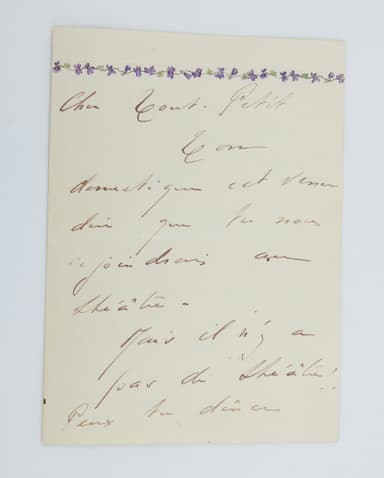 Cher Tout-Petit
Ton
domestique est venu
dire que tu nous
rejoindrais au
théâtre -
Mais il n'y a
pas de théâtre!
Peux tu dîner